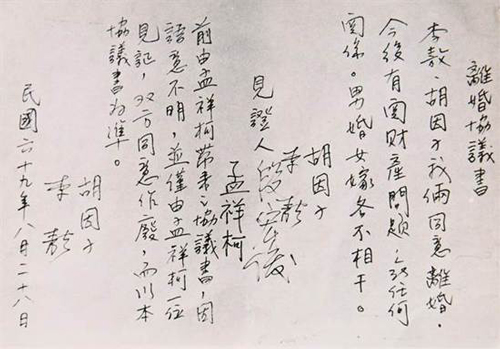 離婚協議書
李敖、胡因子我倆同意離婚。
今後有関財產問題,任何
関係。男婚女嫁各不相干。
胡因子
李敖
見證人段宏俊
孟祥柯
前由孟祥柯帶來之協議書,因
語意不明,並僅由孟祥柯一位
見証,双方同意作廢,而以本
協議書為準。
胡因子
李敖
民國六十九年八月二十八日